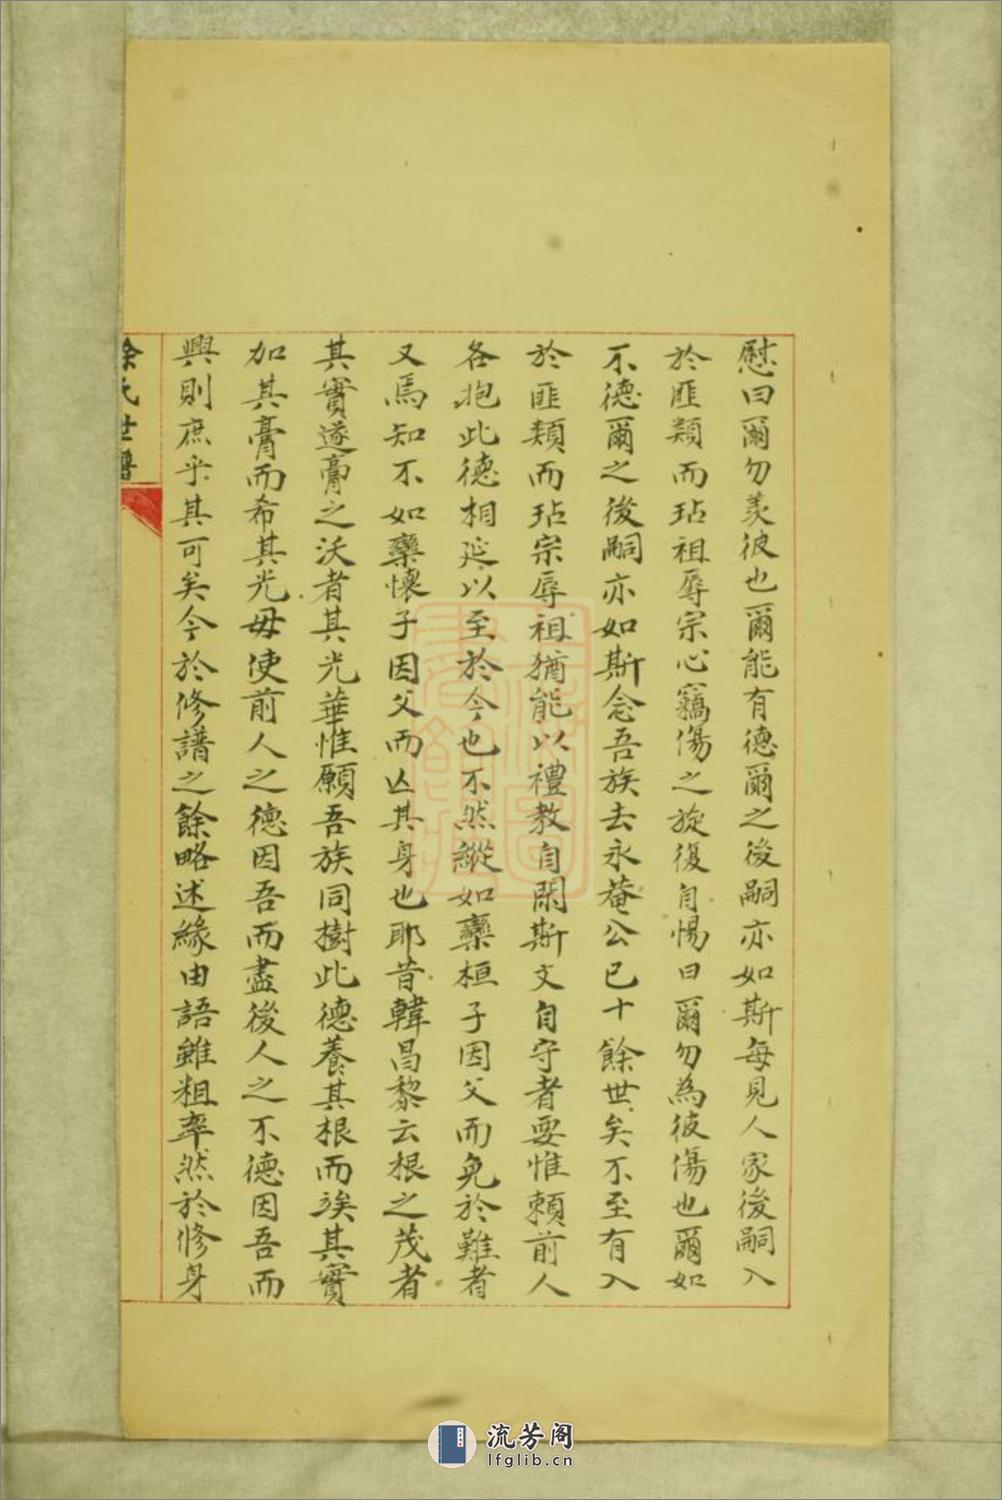 慰曰爾勿羡彼也爾能有德爾之後嗣亦如斯每見人家後嗣入
於匪類而玷祖辱宗心竊傷之旋復自惕曰爾勿為彼傷也爾如
不德爾之後嗣亦如斯念吾族去永菴公已十餘世矣不至有入
於匪類而玷宗辱祖猶能以禮教自閑斯文自守者要惟賴前人
各抱此德相延以至於今也不然縱如欒桓子因父而免於難者
又焉知不如欒懷子因父而亾其身也耶昔韓昌黎云根之茂者
其實遂膏之沃者其光華惟願吾族同樹此德養其根而竢其實
加其膏而希其光毋使前人之德因吾而盡後人之不德因吾而
興則庶乎其可矣今於修譜之餘略述緣由語雖粗率然於修身
余氏世譜
流芳阁
lfglib.cn